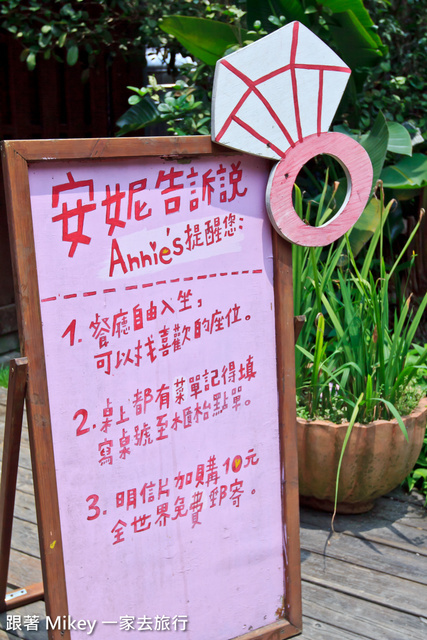 安妮告訴說
Annie's提醒您:
1. 餐廳自由入坐,
可以找喜歡的座位。
2. 桌上都有菜單記得填
寫桌號至木櫃枱點單。
3. 明信片加購10元
全世界免費郵寄。
跟著 Mikey 一家去旅行